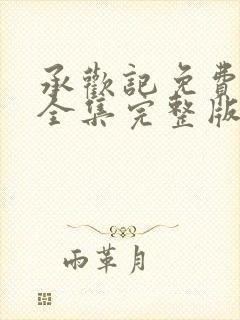 承歡記免費
全集完整版
雨革月